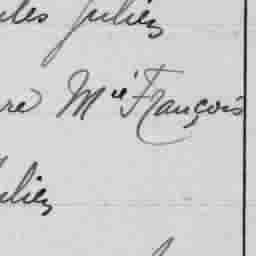 ules Julien
re Mie François
ulien